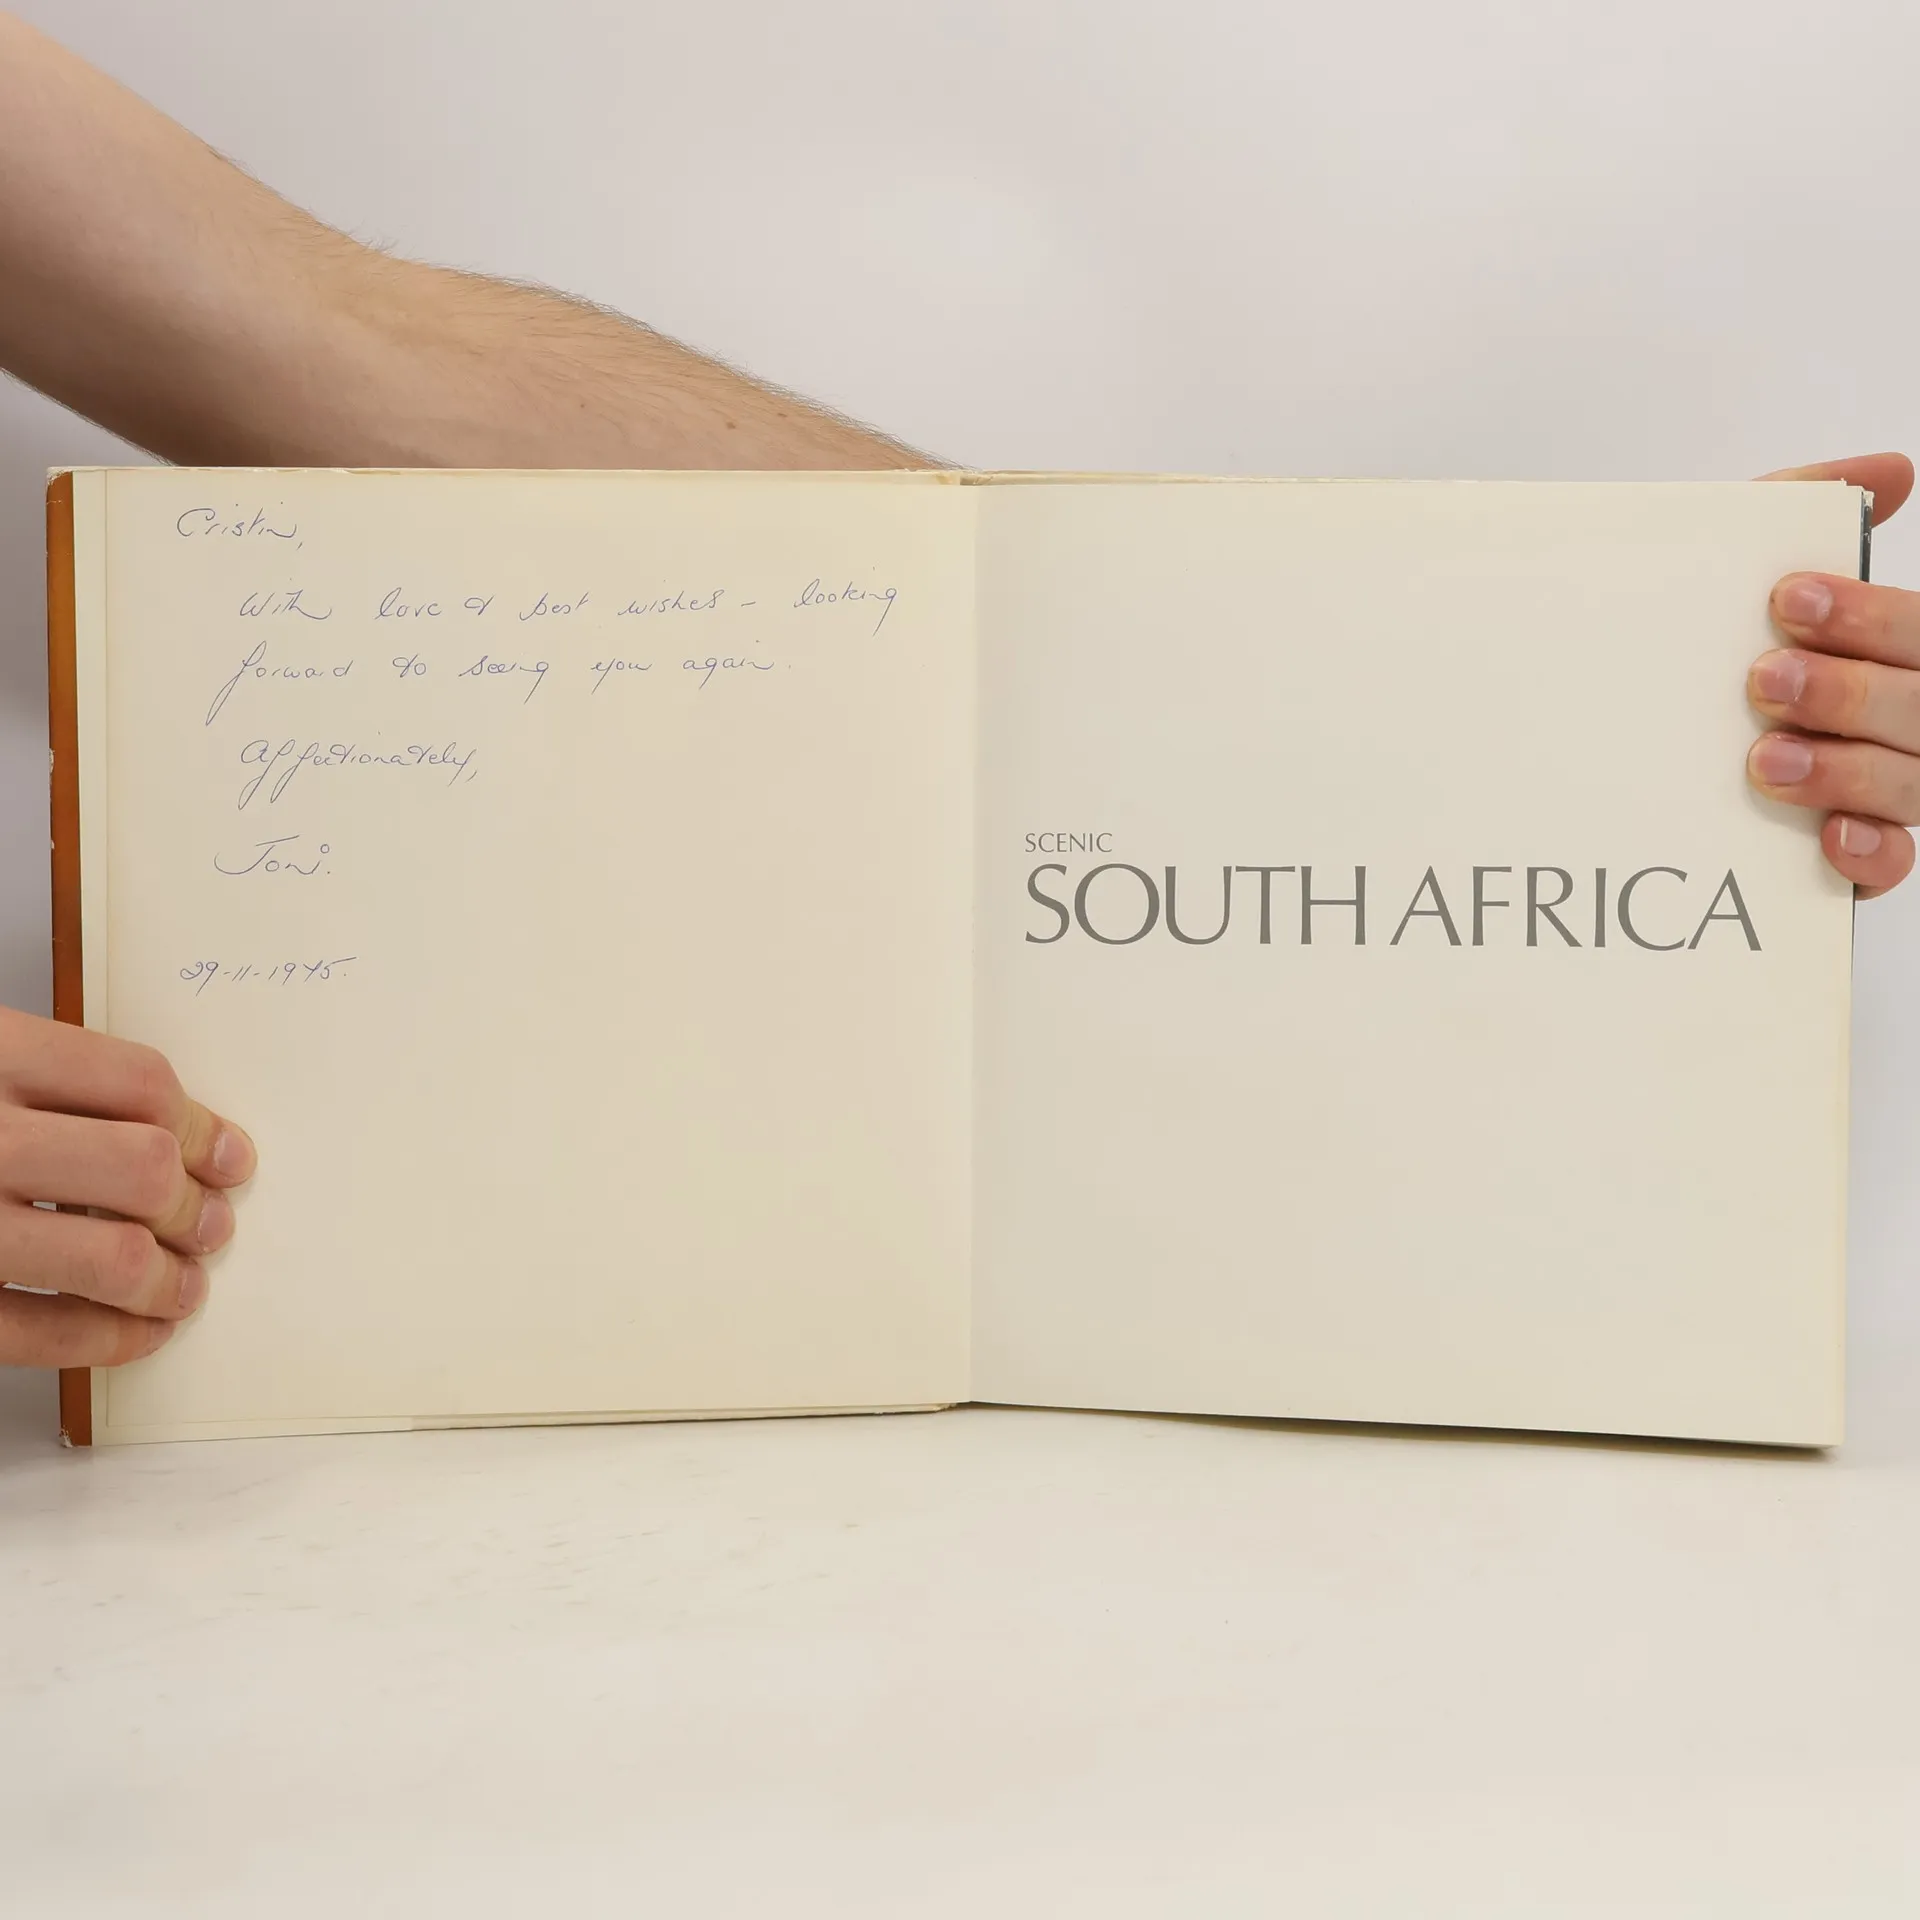 Cristin,
With love & best wishes - looking
forward to seeing you again.
Affectionately,
Joni.
29-11-1975.
SCENIC
SOUTH AFRICA